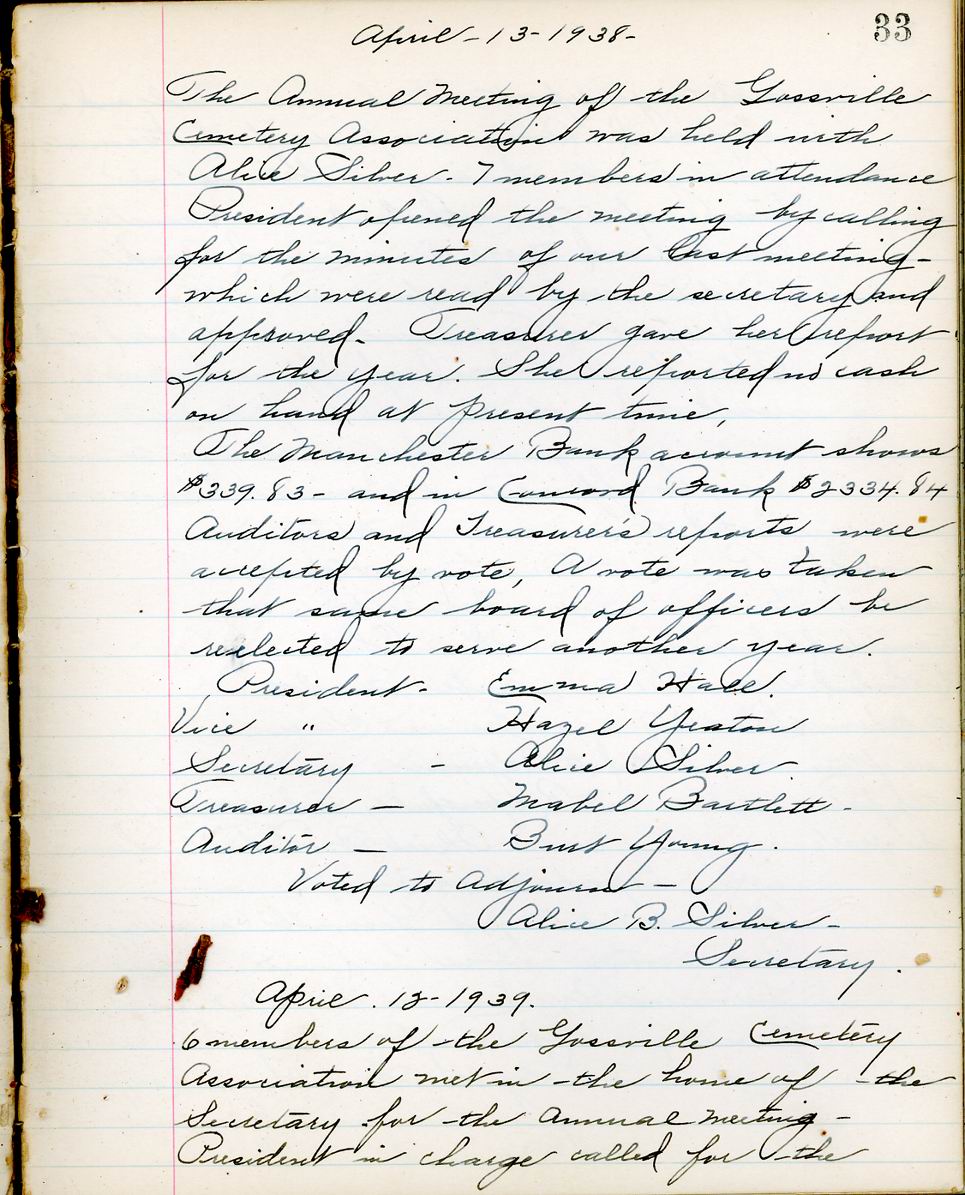 April - 13 - 1938 -
33
The Annual Meeting of the Gossville
Cemetery Association was held with
Alice Silver - 7 members in attendance
President opened the meeting by calling
for the minutes of our last meeting -
which were read by the secretary and
approved - Treasurer gave her report
for the year. She reported no cash
on hand at present time,
The Manchester Bank account shows
$339.83 - and in Concord Bank $2334.84
Auditors and Treasurer's reports were
accepted by vote, A vote was taken
that same board of officers be
reelected to serve another year.
President - Emma Hall.
Vice " Hazel Yeaton
Secretary - Alice Silver.
Treasurer - Mabel Bartlett -
Auditor - Burt Young.
Voted to Adjourn -
Alice B. Silver -
Secretary.
April. 12 - 1939.
6 members of the Gossville Cemetery
Association met in the home of the
Secretary for the Annual Meeting -
President in charge called for the